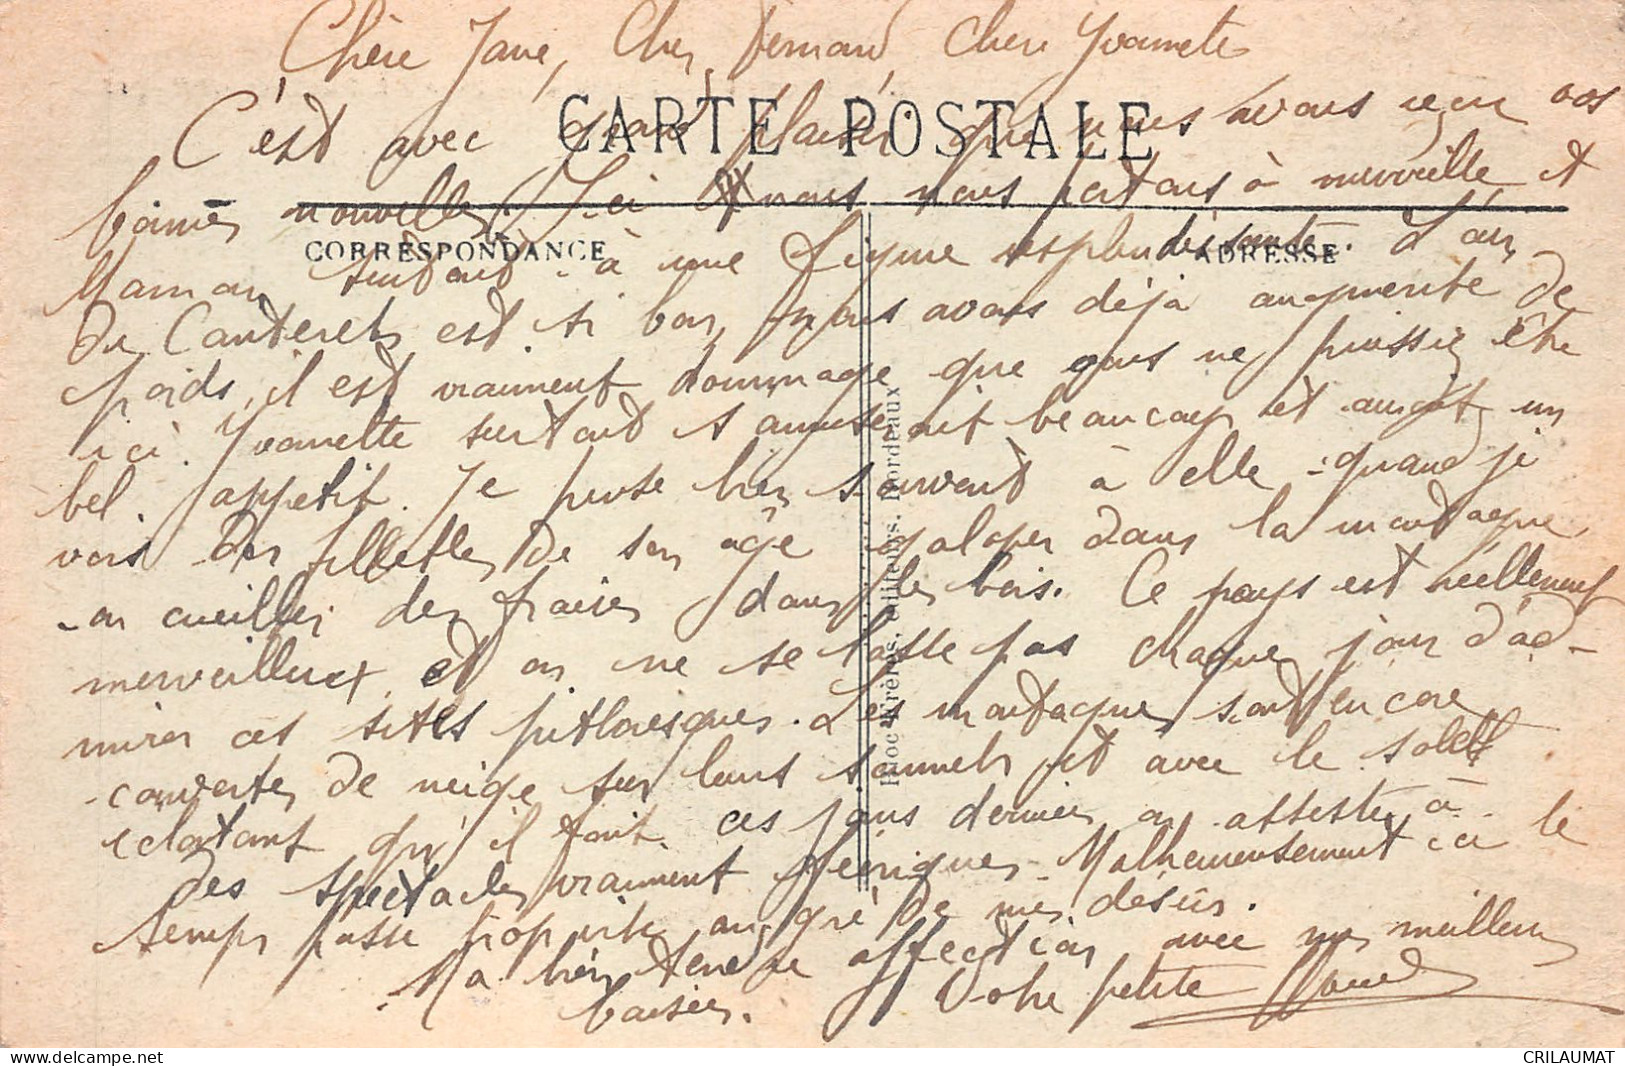 Chère Jane, Cher Fernand, Chère Yvonnete
CARTE POSTALE
C'est avec grand plaisir que nous avons reçu vos
bonnes nouvelles. Ici nous nous portons à merveille et
CORRESPONDANCE
ADRESSE
Maman surtout à une figure resplendissante. L'air
de Cauterets est si bon, nous avons déjà augmenté de
poids, il est vraiment dommage que vous ne puissiez être
ici. Yvonnette surtout s'amuserait beaucoup et aurait un
bel appetit. Je pense bien souvent à elle quand je
vois des fillettes de son âge galoper dans la montagne
ou cueillir des fraises dans les bois. Ce pays est réellement
merveilleux et on ne se lasse pas chaque jour d'ad-
mirer ces sites pittoresques. Les montagnes sont encore
couvertes de neige sur leurs sommets et avec le soleil
éclatant qu'il fait ces jours derniers on assiste à
des spectacles vraiment féeriques. Malheureusement ici le
temps passe trop vite au gré de mes désirs.
Ma bien tendre affection avec mes meilleurs
baisers. Votre petite
frères, éditeurs, Bordeaux
CRILAUMAT